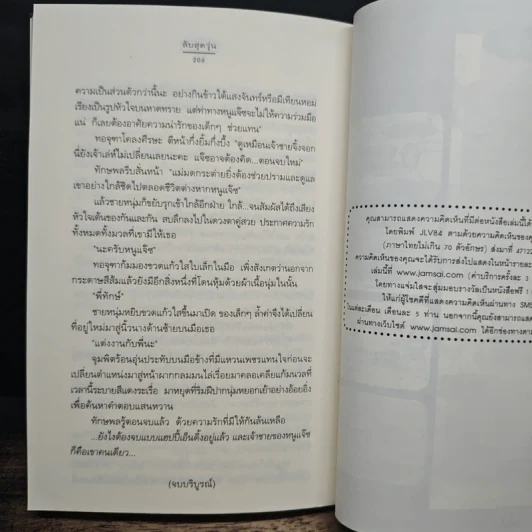 ลับสุดวุ่น
208
ความเป็นส่วนตัวกว่านี้นะ อย่างกินข้าวใต้แสงจันทร์หรือมีเทียนหอม
เรียงเป็นรูปหัวใจบนหาดทราย แต่ท่าทางหนูแจ๊ซจะไม่ให้ความร่วมมือ
แน่ ก็เลยต้องอาศัยความน่ารักของเด็กๆ ช่วยแทน"
ทอจุฑาโคลงศีรษะ ตีหน้ากึ่งยิ้มกึ่งบึ้ง "ดูเหมือนเจ้าชายจิ้งจอก
นี่ยังเจ้าเล่ห์ไม่เปลี่ยนเลยนะคะ แจ๊ซอาจต้องคิด...ตอนจบใหม่"
ทักษพลรีบสั่นหน้า "แม่มดกระต่ายยิ่งต้องช่วยปรามและดูแล
เขาอย่างใกล้ชิดไปตลอดชีวิตต่างหากหนูแจ๊ซ"
แล้วชายหนุ่มก็ขยับรุกเข้าใกล้อีกฝ่าย ใกล้...จนสัมผัสได้ถึงเสียง
หัวใจเต้นของกันและกัน สบลึกลงไปในดวงตาคู่สวย ประกาศความรัก
ทั้งหมดทั้งมวลที่เขามีให้เธอ
"นะครับหนูแจ๊ซ"
ทอจุฑาก้มมองขวดแก้วใสใบเล็กในมือ เพิ่งสังเกตว่านอกจาก
กระดาษสีส้มแล้วยังมีอีกสิ่งหนึ่งที่โดนหุ้มด้วยผ้าเนื้อนุ่มในนั้น
"พี่ทักษ์"
ชายหนุ่มหยิบขวดแก้วใสขึ้นมาเปิด ของเล็กๆ ล้ำค่าจึงได้เปลี่ยน
ที่อยู่ใหม่มาสู่นิ้วนางด้านซ้ายบนมือเธอ
"แต่งงานกับพี่นะ"
จุมพิตร้อนอุ่นประทับบนมือข้างที่มีแหวนเพชรแทนใจก่อนจะ
เปลี่ยนตำแหน่งมาสู่หน้าผากกลมมนไล่เรื่อยมาคลอเคลียแก้มนวลที่
เวลานี้ระบายสีแดงระเรื่อ มาหยุดที่ริมฝีปากนุ่มหยอกเย้าอย่างอ้อยอิ่ง
เพื่อค้นหาคำตอบแสนหวาน
ทักษพลรู้ตอนจบแล้ว ด้วยความรักที่มีให้กันล้นเหลือ
...ยังไงต้องจบแบบแฮปปี้เอ็นดิ้งอยู่แล้ว และเจ้าชายของหนูแจ๊ซ
ก็คือเขาคนเดียว...
(จบบริบูรณ์)
คุณสามารถแสดงความคิดเห็นที่มีต่อหนังสือเล่มนี้ได้
โดยพิมพ์ JLV84 ตามด้วยความคิดเห็นของคุ
(ภาษาไทยไม่เกิน 70 ตัวอักษร) ส่งมาที่ 47122
ความคิดเห็นของคุณจะได้รับการส่งไปแสดงในหน้าราย
เล่มนี้ที่ www.jamsai.com (ค่าบริการครั้งละ 3
โดยทางแจ่มใสจะสุ่มมอบรางวัลเป็นหนังสือฟรี 1
ให้แก่ผู้โชคดีที่แสดงความคิดเห็นผ่านทาง SMS
ในแต่ละเดือน เดือนละ 5 ท่าน นอกจากนี้คุณยังสามารถแสด
ผ่านทางเว็บไซต์ www.jamsai.com ได้อีกช่องทาง